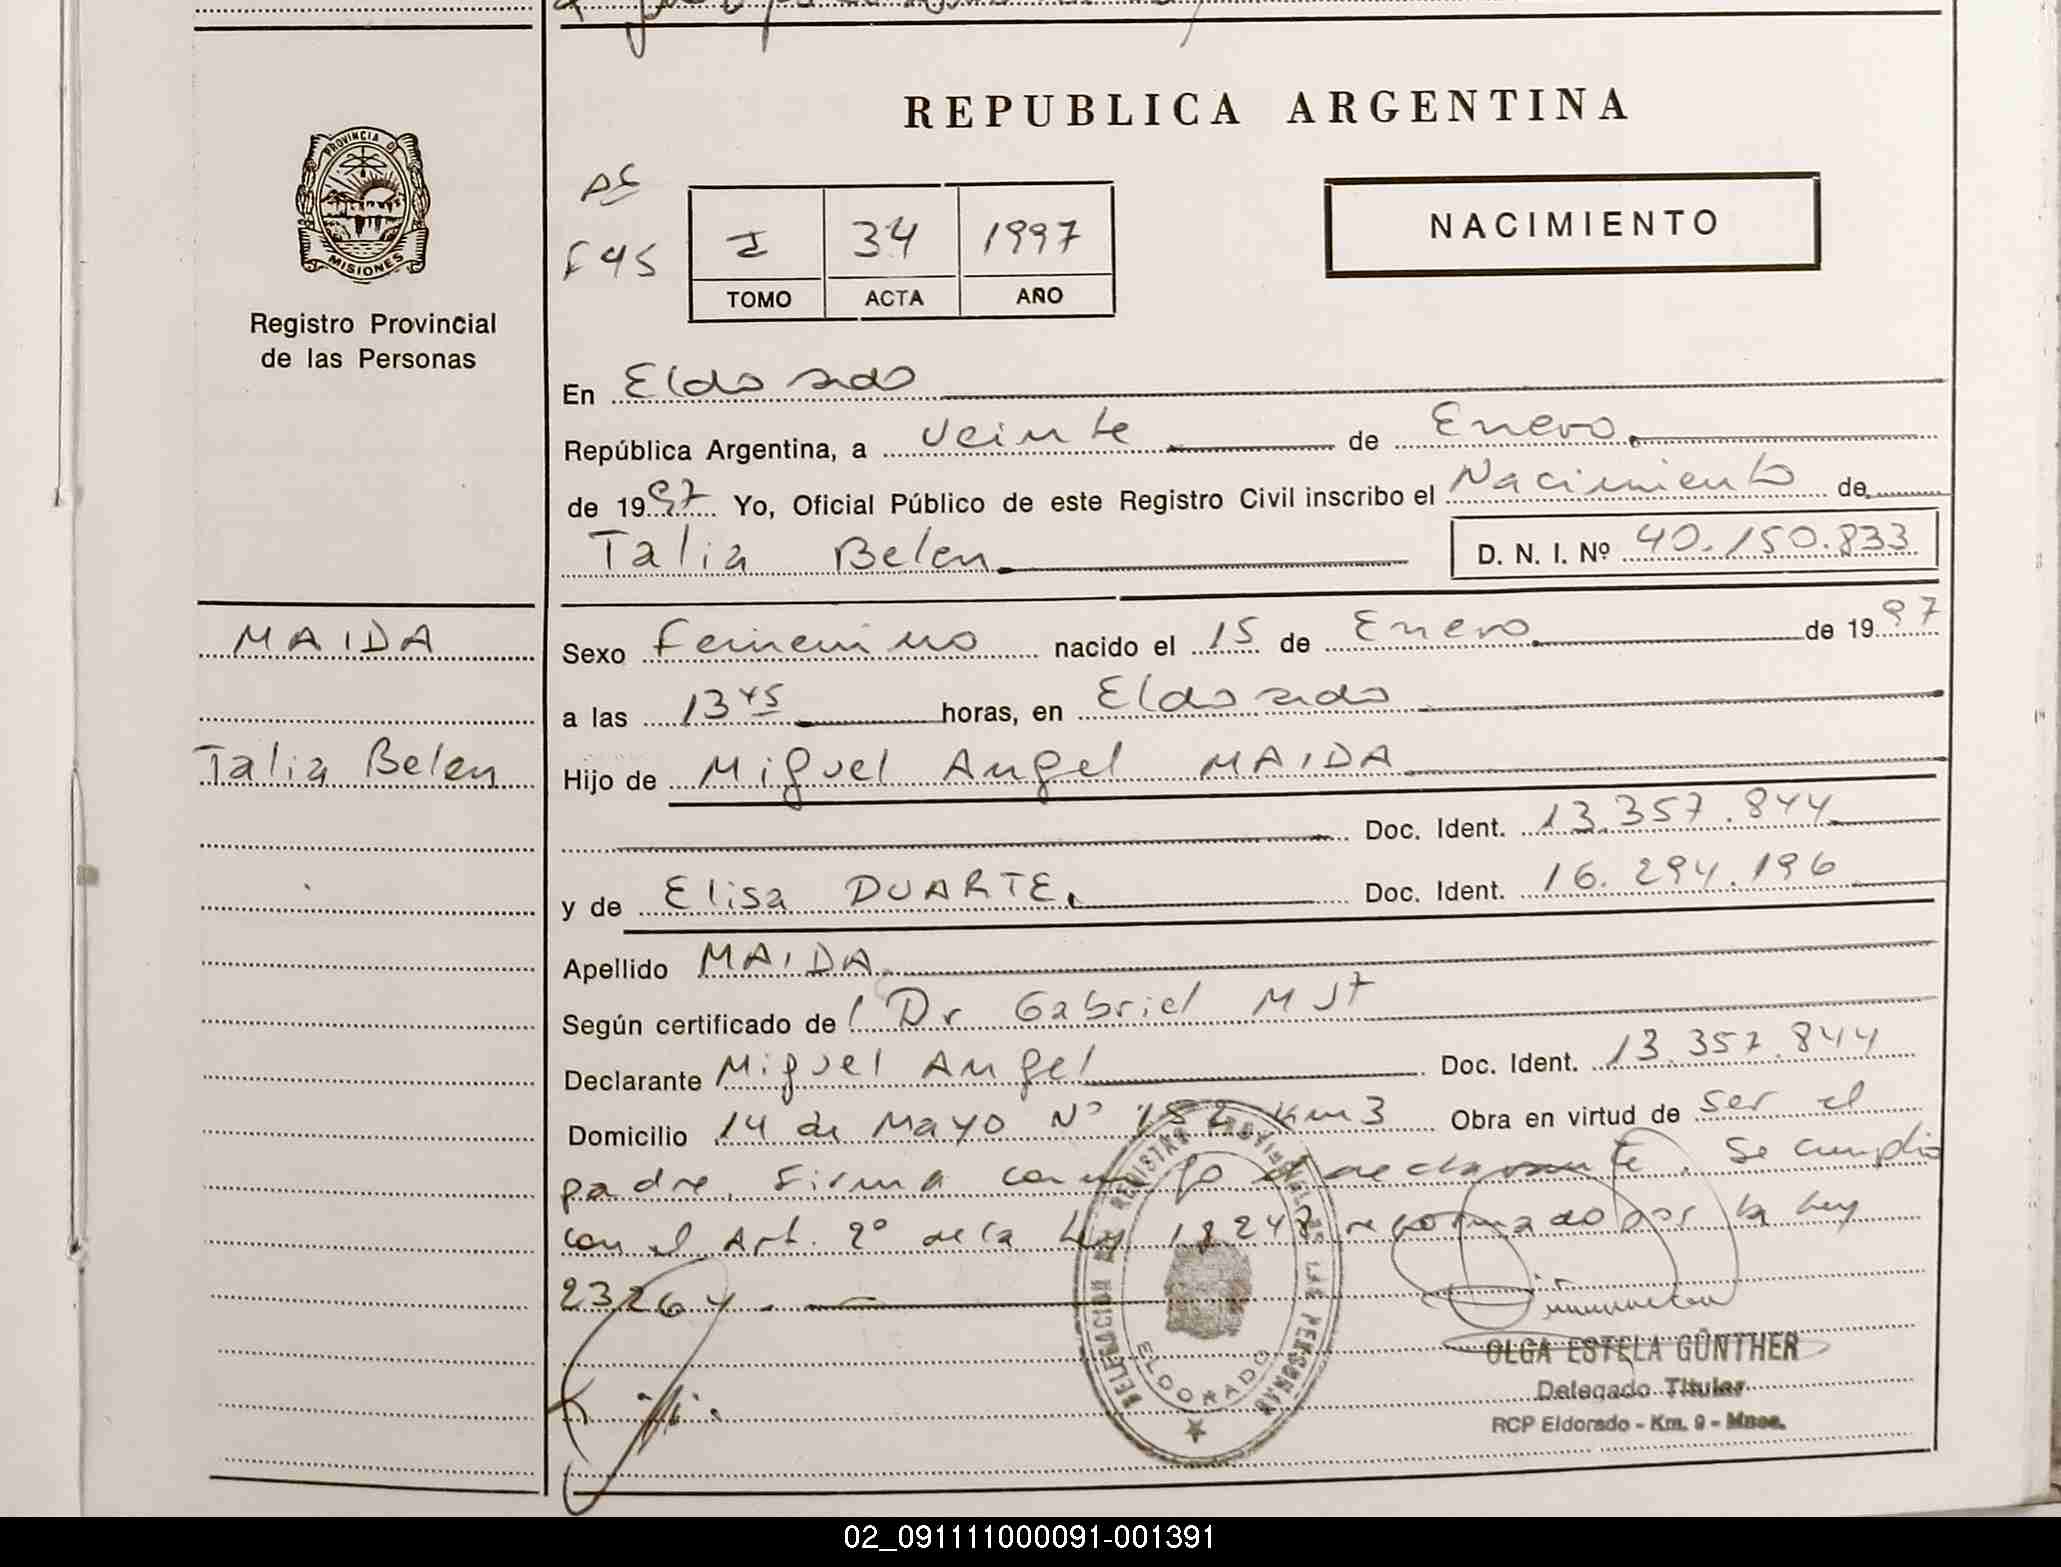 REPUBLICA ARGENTINA
PROVINCIA D
MISIONES
Registro Provincial
de las Personas
I 34 1997
TOMO ACTA AÑO
NACIMIENTO
En Eldorado
República Argentina, a veinte de Enero
de 1997 Yo, Oficial Público de este Registro Civil inscribo el Nacimiento de
Talia Belen D. N. I. Nº 40.150.833
MAIDA
Talia Belen
Sexo Femenino nacido el 15 de Enero de 1997
a las 13 45 horas, en Eldorado
Hijo de Miguel Angel MAIDA
Doc. Ident. 13.357.844
y de Elisa DUARTE. Doc. Ident. 16.294.196
Apellido MAIDA
Según certificado de Dr Gabriel
Declarante Miguel Angel Doc. Ident. 13.357.844
Domicilio 14 de Mayo Nº Km 3 Obra en virtud de ser el
padre. Firma conmigo el declarante. Se cumplio
con el Art. 2º de la Ley 18248 reformado por la Ley
23264.
DELEGACION DEL REGISTRO PROVINCIAL DE LAS PERSONAS
ELDORADO
OLGA ESTELA GÜNTHER
Delegado Titular
RCP Eldorado - Km. 9 - Mnes.
02_091111000091-001391